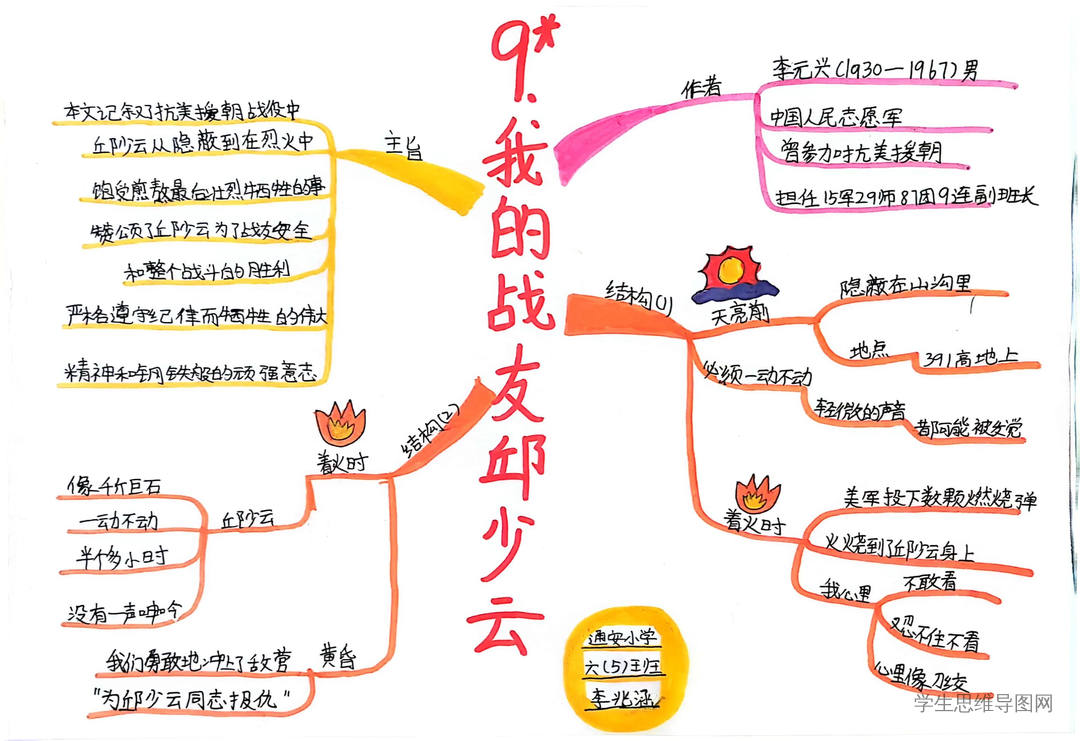 9.*我的战友邱少云
作者
李元兴(1930—1967)男
中国人民志愿军
曾参加过抗美援朝
担任15军29师87团9连副班长
主旨
本文记叙了抗美援朝战役中
邱少云从隐蔽到在烈火中
饱受煎熬最后壮烈牺牲的事
赞颂了邱少云为了战友安全
和整个战斗的胜利
严格遵守纪律而牺牲的伟大
精神和钢铁般的顽强意志
结构(1)
天亮前
隐蔽在山沟里
地点
391高地上
必须一动不动
轻微的声音
都可能被发觉
着火时
美军投下数颗燃烧弹
火烧到了邱少云身上
我心里
不敢看
又忍不住不看
心里像刀绞
结构(2)
着火时
邱少云
像千斤巨石
一动不动
半个多小时
没有一声呻吟
黄昏
我们勇敢地冲上了敌营
"为邱少云同志报仇"
通安小学
六(5)班
李兆涵
学生思维导图网